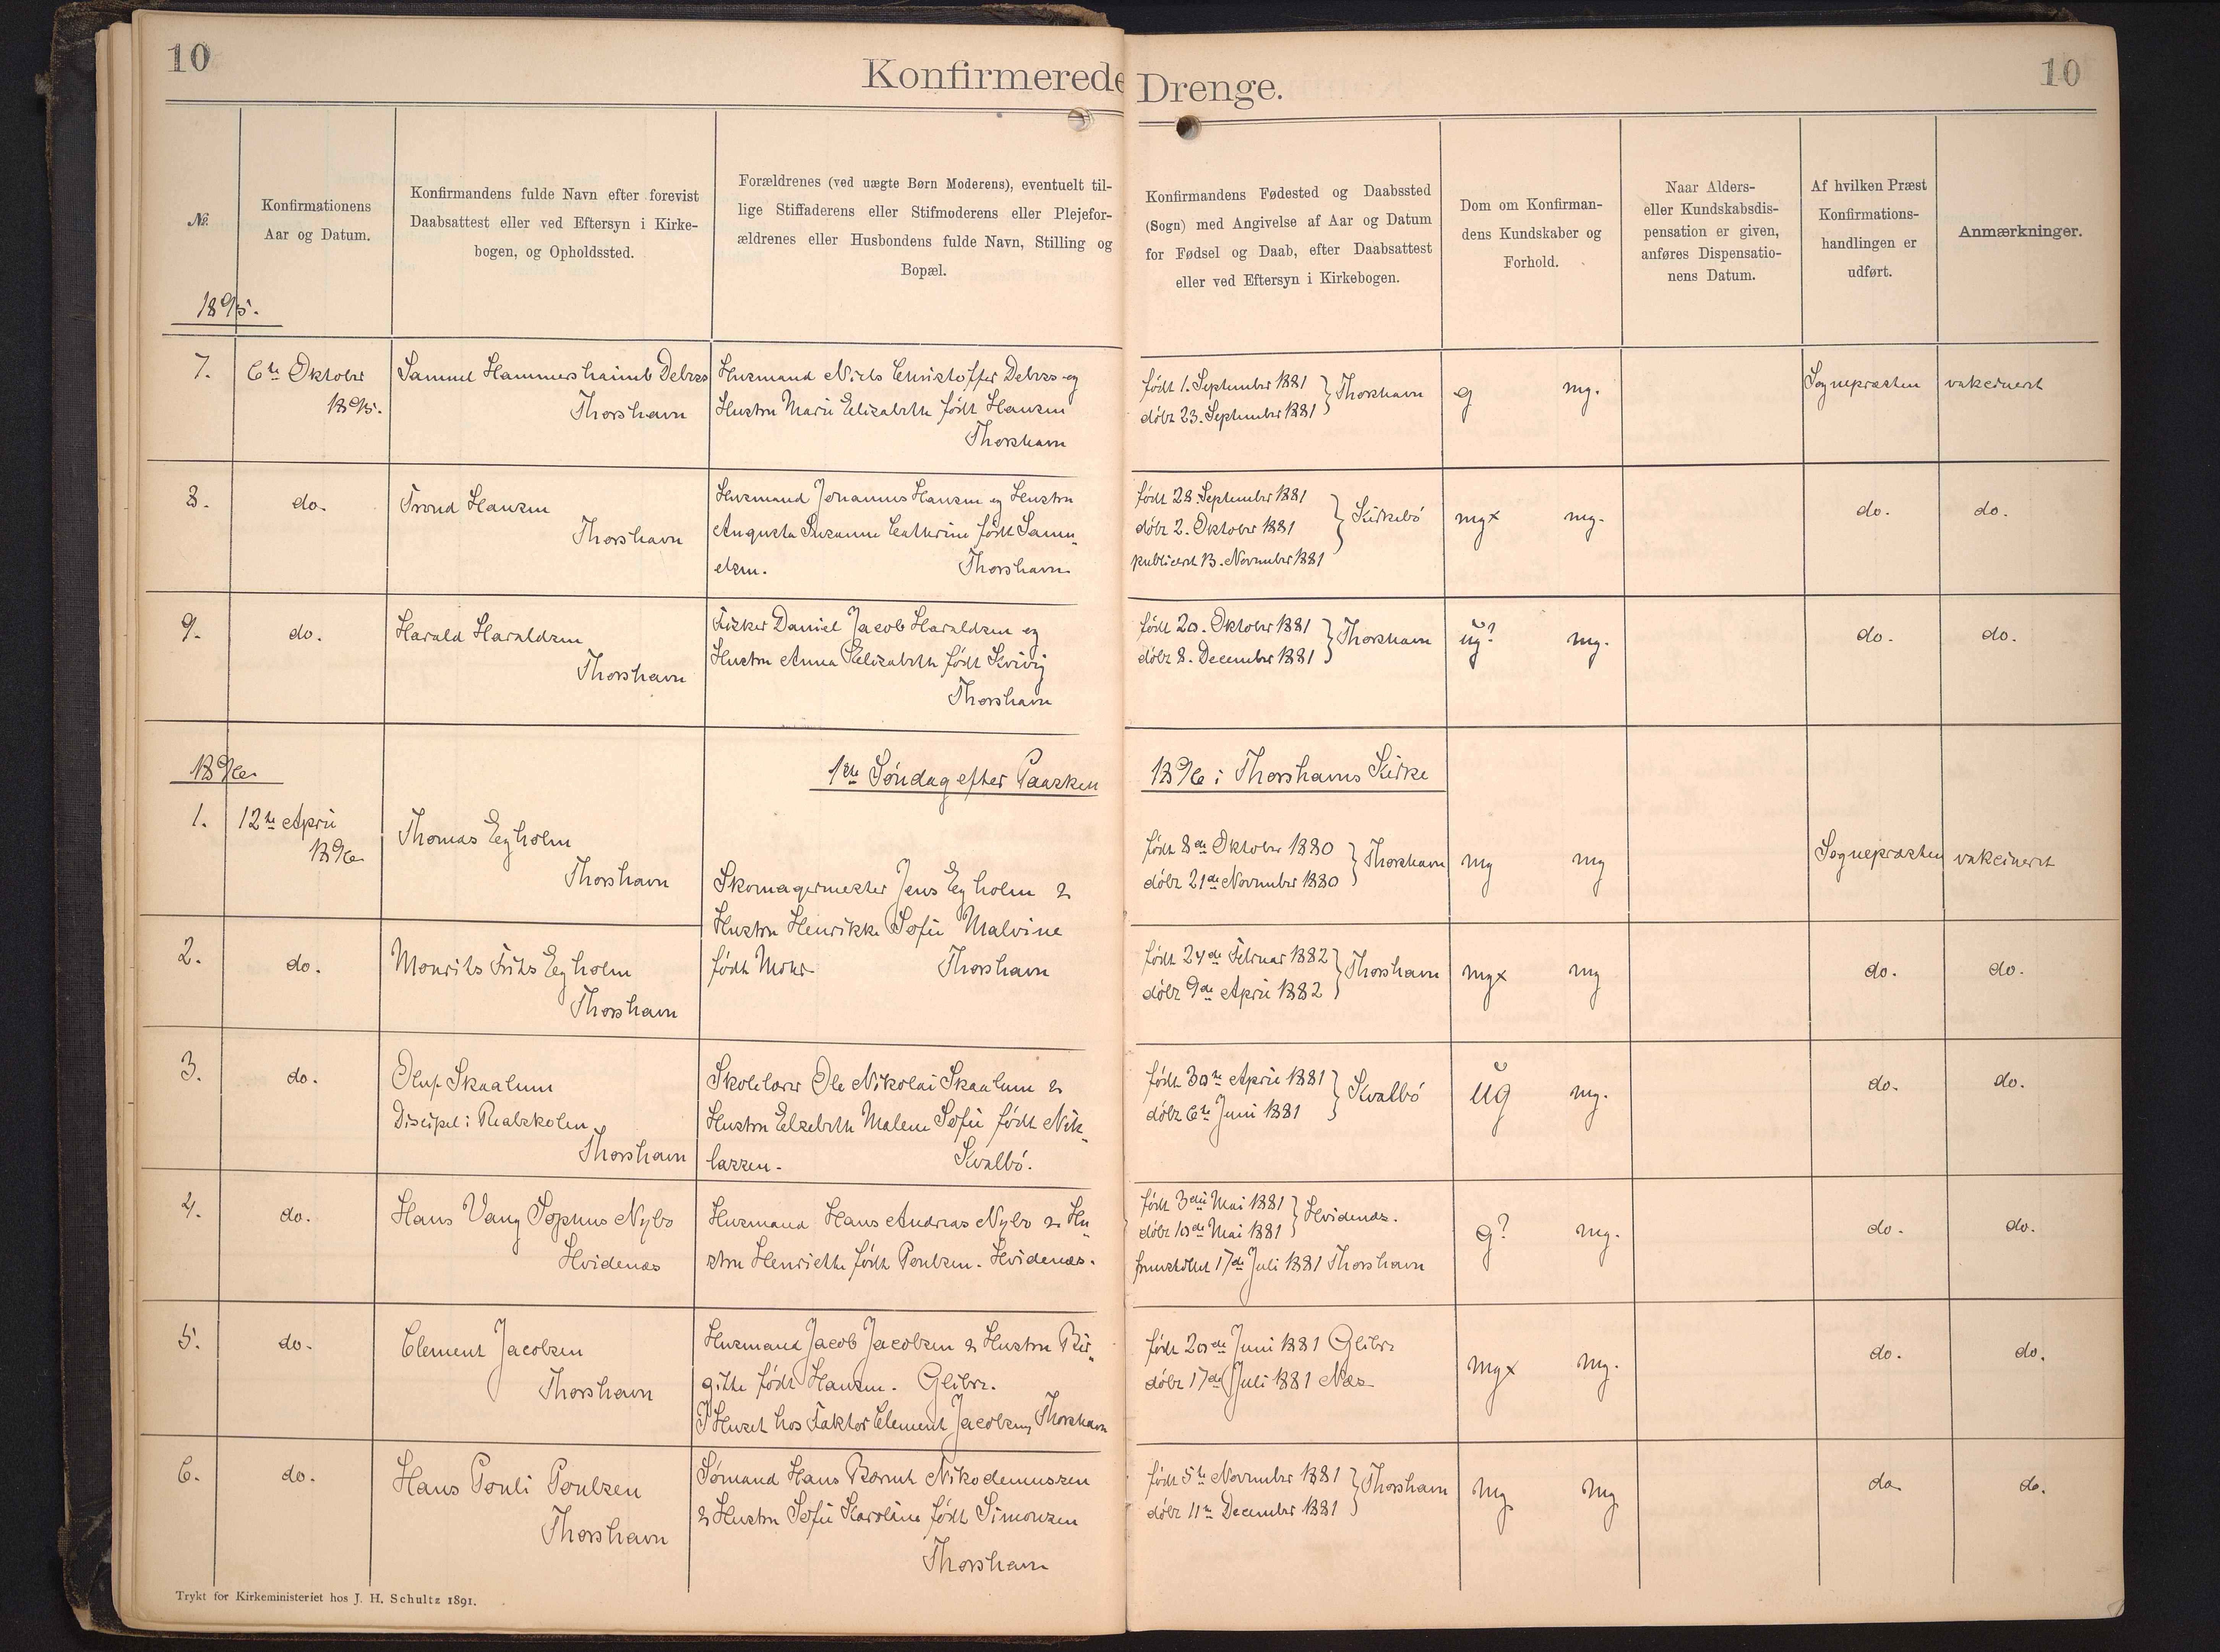 10
Konfirmerede Drenge.
10
№
Konfirmationens
Aar og Datum.
Konfirmandens fulde Navn efter forevist
Daabsattest eller ved Eftersyn i Kirke-
bogen, og Opholdssted.
Forældrenes (ved uægte Børn Moderens), eventuelt til-
lige Stiffaderens eller Stifmoderens eller Plejefor-
ældrenes eller Husbondens fulde Navn, Stilling og
Bopæl.
Konfirmandens Fødested og Daabssted
(Sogn) med Angivelse af Aar og Datum
for Fødsel og Daab, efter Daabsattest
eller ved Eftersyn i Kirkebogen.
Dom om Konfirman-
dens Kundskaber og
Forhold.
Naar Alders-
eller Kundskabsdis-
pensation er given,
anføres Dispensatio-
nens Datum.
Af hvilken Præst
Konfirmations-
handlingen er
udført.
Anmærkninger.
1895.
7.
6te Oktober
1895.
Samuel Hammershaimb Debess
Thorshavn
Husmand Niels Christoffer Debess og
Hustru Marie Elisabeth født Hansen
Thorshavn
født 1. September 1881
døbt 23. September 1881
Thorshavn
g
mg.
Sognepræsten
vakcineret
8.
do.
Trond Hansen
Thorshavn
Husmand Johannes Hansen og Hustru
Augusta Susanne Cathrine født Samu-
elsen.
Thorshavn
født 28. September 1881
døbt 2. Oktober 1881
publiceret 13. November 1881
Kirkebø
mgx
mg.
do.
do.
9.
do.
Harald Haraldsen
Thorshavn
Fisker Daniel Jacob Haraldsen og
Hustru Anna Elisabeth født Kvivig
Thorshavn
født 20. Oktober 1881
døbt 8. December 1881
Thorshavn
ug?
mg.
do.
do.
1896.
1ste Søndag efter Paasken
1896 i Thorshavns Kirke
1.
12te April
1896
Thomas Egholm
Thorshavn
Skomagermester Jens Egholm &
Hustru Henrikke Sofie Malvine
født Mohr
Thorshavn
født 8de Oktober 1880
døbt 21de November 1880
Thorshavn
mg
mg
Sognepræsten
vakcineret
2.
do.
Mouritz Frits Egholm
Thorshavn
født 24de Februar 1882
døbt 9de April 1882
Thorshavn
mgx
mg
do.
do.
3.
do.
Oluf Skaalum
Discipel i Realskolen
Thorshavn
Skolelærer Ole Nikolai Skaalum &
Hustru Elsebeth Malene Sofie født Nik-
lassen.
Kvalbø.
født 30te April 1881
døbt 6te Juni 1881
Kvalbø
ug
mg.
do.
do.
4.
do.
Hans Vang Sophus Nybo
Hvidenæs
Husmand Hans Andreas Nybo & Hu-
stru Henriette født Poulsen. Hvidenæs.
født 3die Mai 1881
døbt 10de Mai 1881
Hvidenæs.
fremstillet 17de Juli 1881 Thorshavn
g?
mg.
do.
do.
5.
do.
Clement Jacobsen
Thorshavn
Husmand Jacob Jacobsen & Hustru Bir-
gitte født Hansen. Glibre.
I Huset hos Faktor Clement Jacobsen, Thorshavn
født 20de Juni 1881 Glibre
døbt 17de Juli 1881 Næs
mgx
mg.
do.
do.
6.
do.
Hans Pouli Poulsen
Thorshavn
Sømand Hans Berent Nikodemussen
& Hustru Sofie Karoline født Simonsen
Thorshavn
født 5te November 1881
døbt 11te December 1881
Thorshavn
mg
mg
do
do.
Trykt for Kirkeministeriet hos J. H. Schultz 1891.